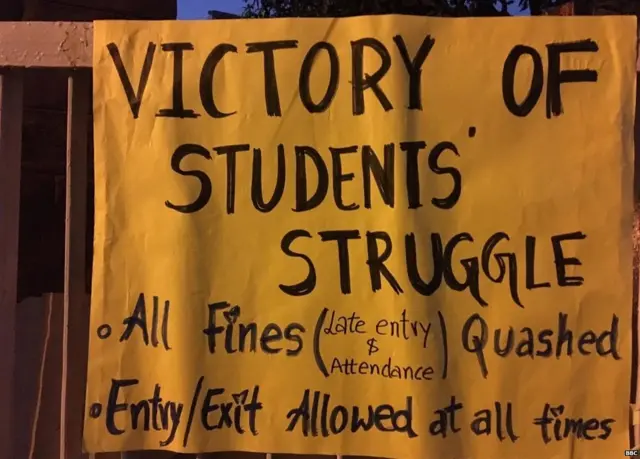 VICTORY OF
STUDENTS'
STRUGGLE
• All Fines (Late entry & Attendance) Quashed
• Entry/Exit Allowed at all times
BBC